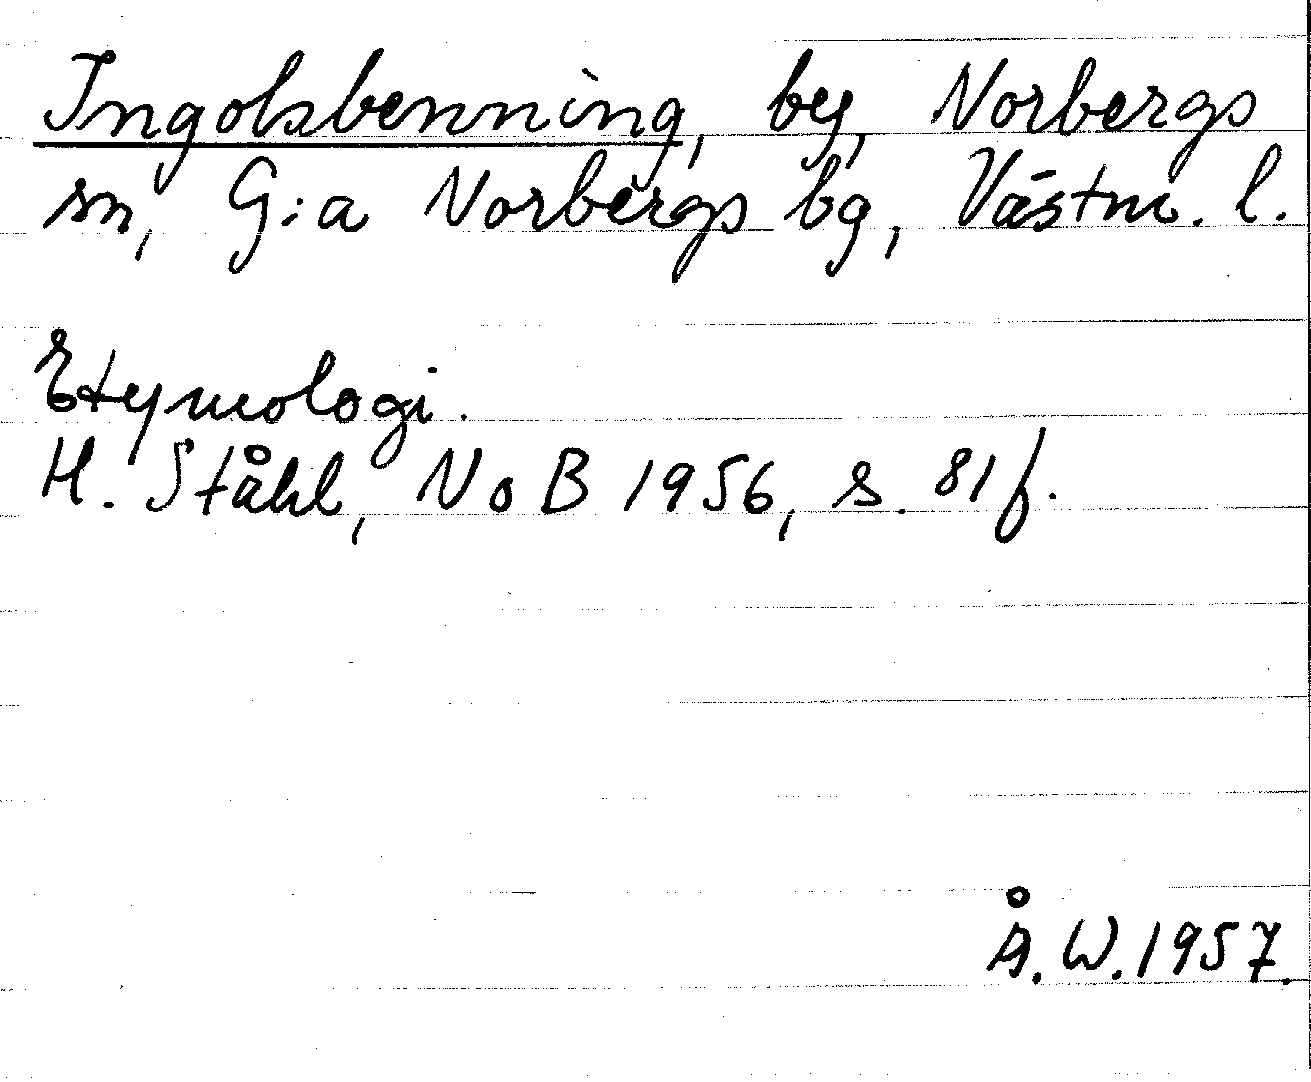 Ingolsbenning, by, Norbergs
sn, G:a Norbergs bg, Västm. l.
Etymologi.
H. Ståhl, NoB 1956, s. 81 f.
Å. W. 1957.